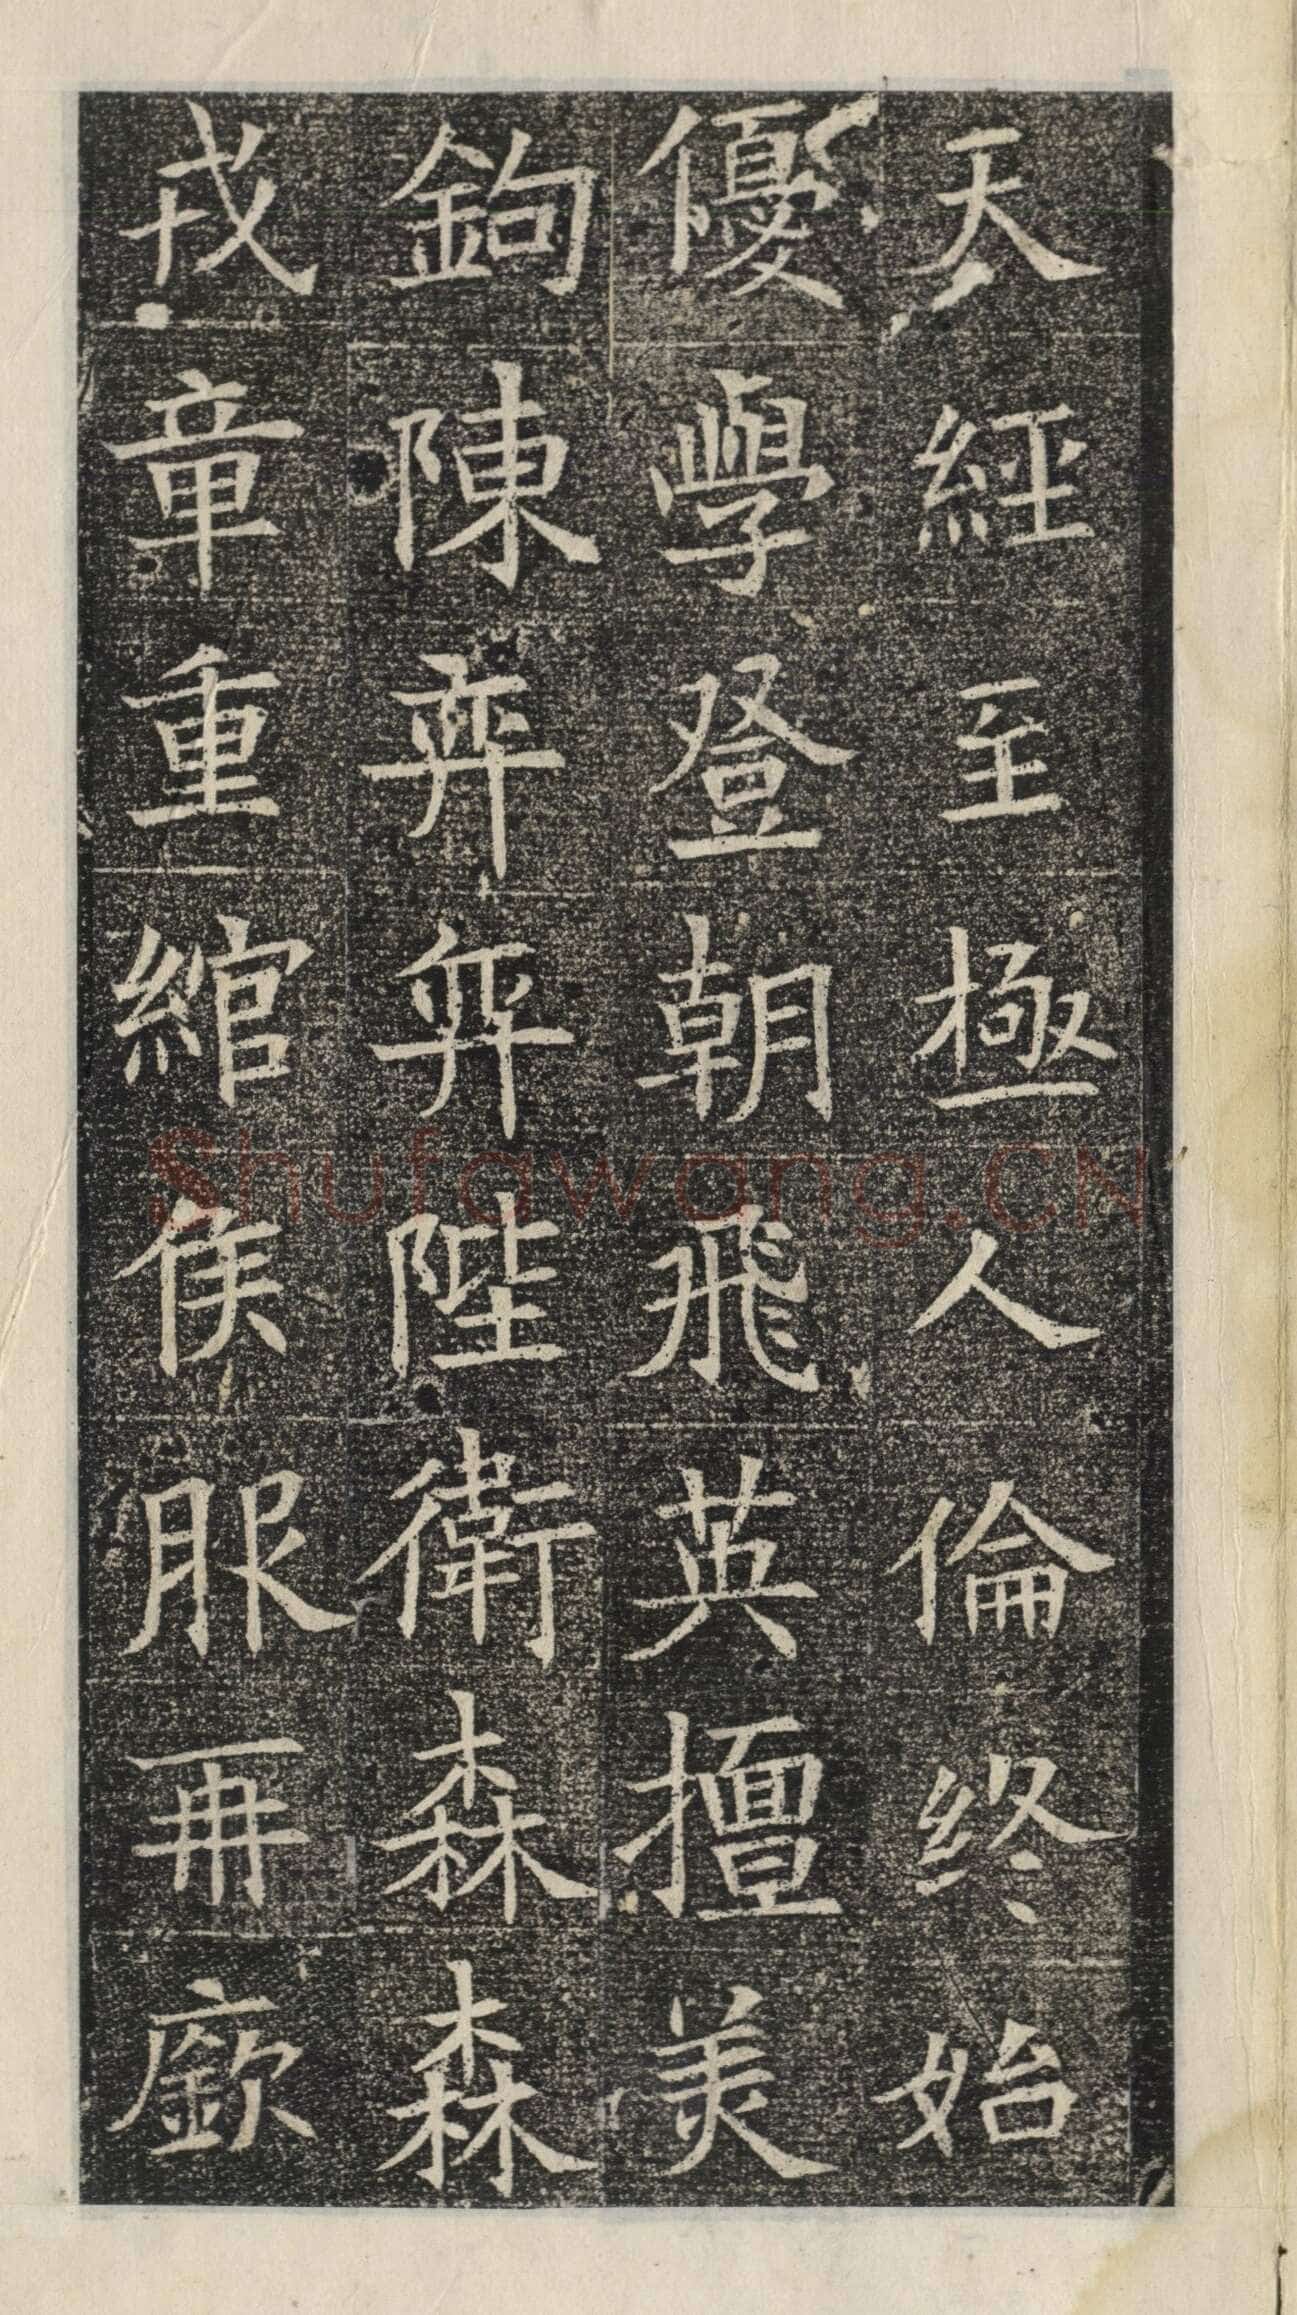 天經至極人倫終始
優學登朝飛英擅美
鉤陳弈弈陛衛森森
戎章重綰侯服再廞
Shufawang.CN